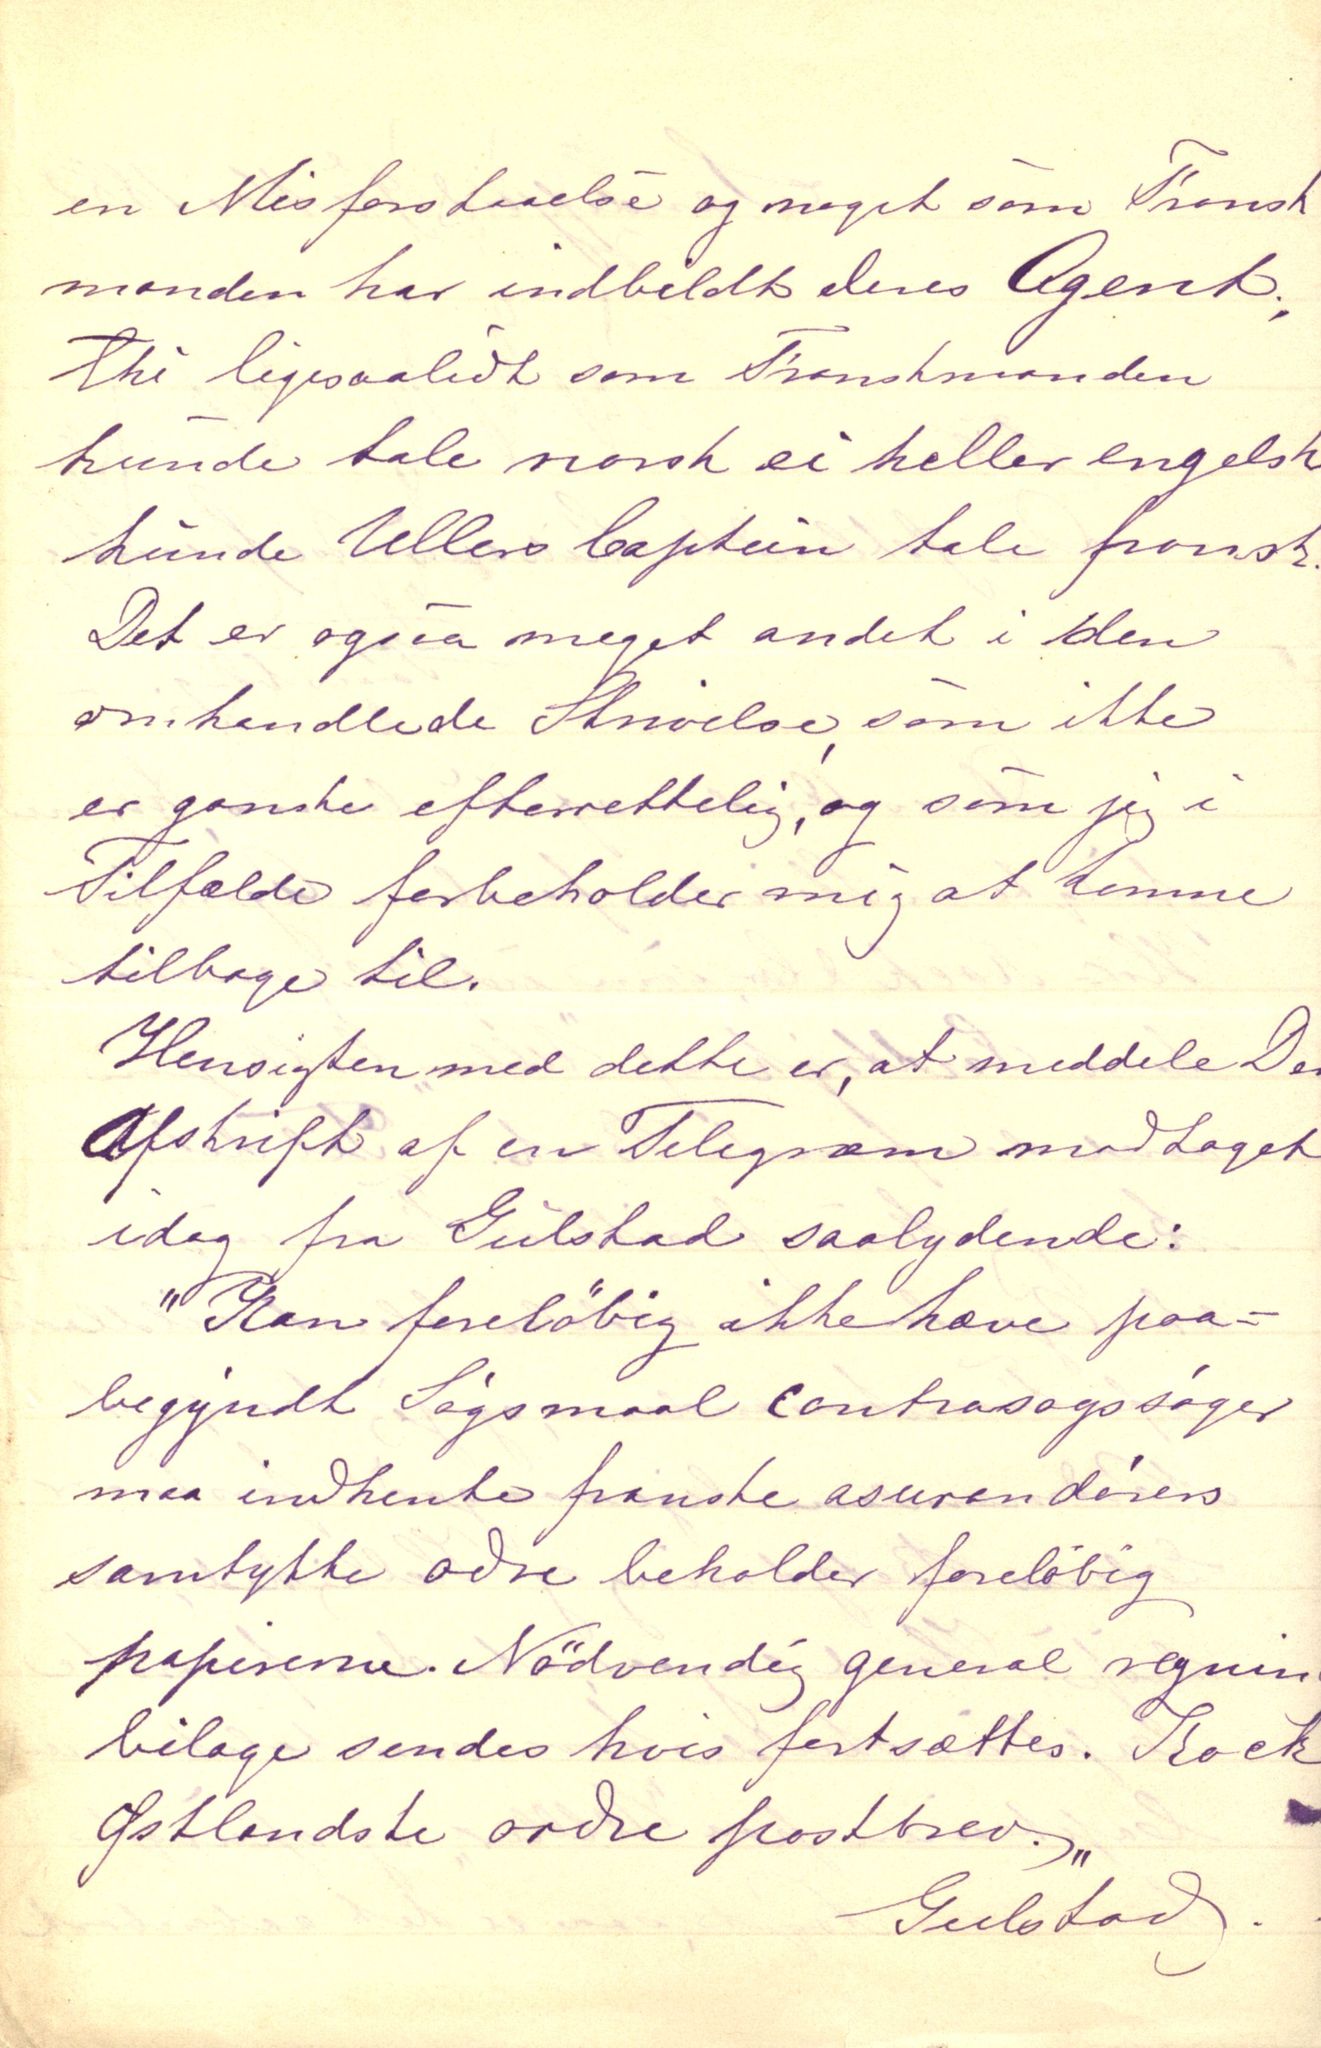 en Misforstaaelse og noget som Fransk
manden har indbildt deres Agent;
Thi ligesaalidt som Franskmanden
kunde tale norsk ei heller engelsk
kunde Ullers Captein tale fransk.
Det er ogsaa meget andet i den
omhandlede Skrivelse, som ikke
er ganske efterrettelig, og som jeg i
Tilfælde forbeholder mig at komme
tilbage til.
Hensigten med dette er, at meddele De
Afskrift af en Telegram modtaget
idag fra Gulstad saalydende:
"Kan foreløbig ikke hæve paa-
begyndt Søgsmaal contrasagssøger
maa indhente franske asurandørers
samtykke odre beholder foreløbig
papirerne. Nödvendig general regnin
bilage sendes hvis fortsættes. Kock
Østlandske ordre postbrev."
Gulstad.